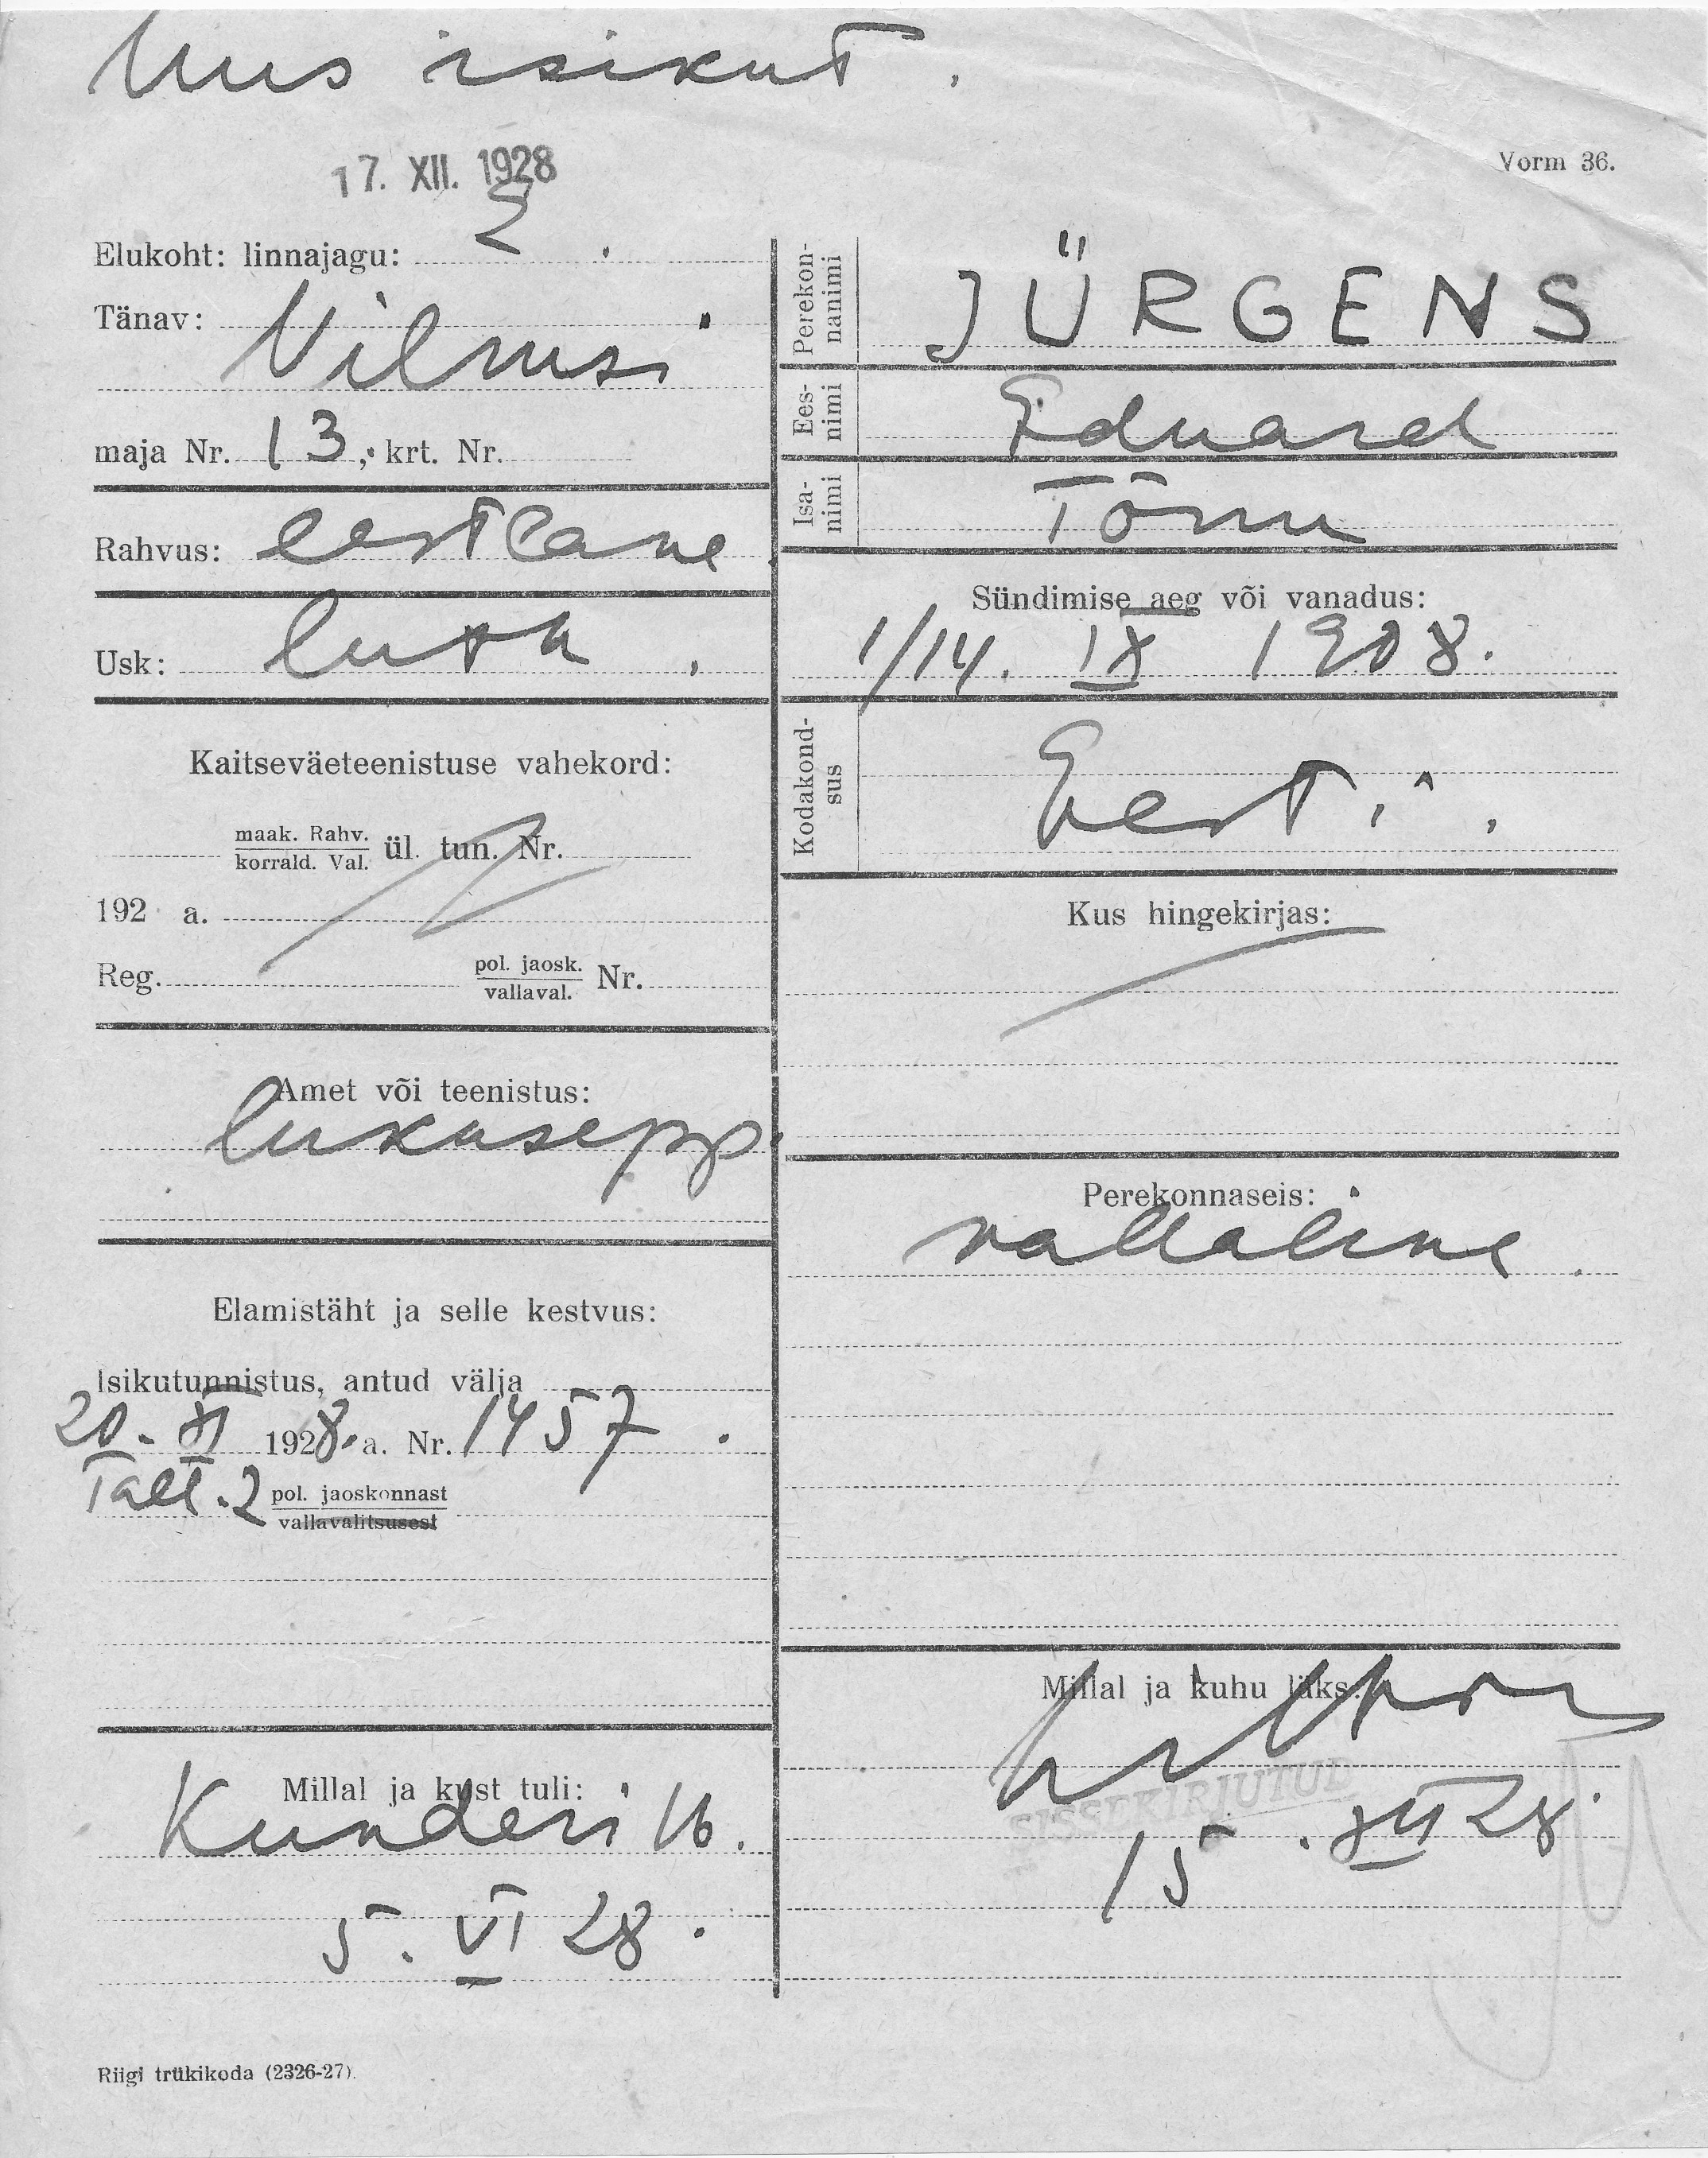 Uus isikut.
17. XII. 1928
Vorm 36.
Elukoht: linnajagu: 2
Tänav: Vilmsi
maja Nr. 13, krt. Nr.
Rahvus: eestlane
Usk: luth.
Kaitseväeteenistuse vahekord:
maak. Rahv.
korrald. Val. ül. tun. Nr.
192 a.
Reg. pol. jaosk.
vallaval. Nr.
Amet või teenistus:
lukusepp.
Elamistäht ja selle kestvus:
Isikutunnistus, antud välja
20. XI 1928. a. Nr. 1457.
Tall. 2 pol. jaoskonnast
vallavalitsusest
Millal ja kust tuli:
Kunderi 16.
5. VI 28.
Perekonnanimi
JÜRGENS
Eesnimi
Eduard
Isanimi
Tõnu
Sündimise aeg või vanadus:
1/14. IX 1908.
Kodakondsus
Eesti.
Kus hingekirjas:
Perekonnaseis:
vallaline.
Millal ja kuhu läks:
SISSEKIRJUTUD
15. XII 28.
Riigi trükikoda (2326-27).